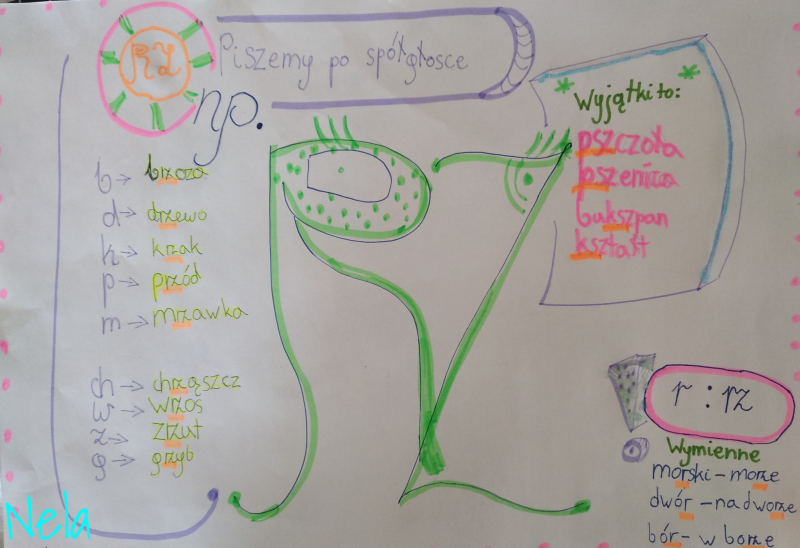 RZ
Piszemy po spółgłosce
np.
b → brzoza
d → drzewo
k → krzak
p → przód
m → mrzawka
ch → chrząszcz
w → wrzos
z → zrzut
g → grzyb
RZ
Wyjątki to:
pszczoła
pszenica
bukszpan
kształt
r : rz
Wymienne
morski – morze
dwór – na dworze
bór – w borze
Nela